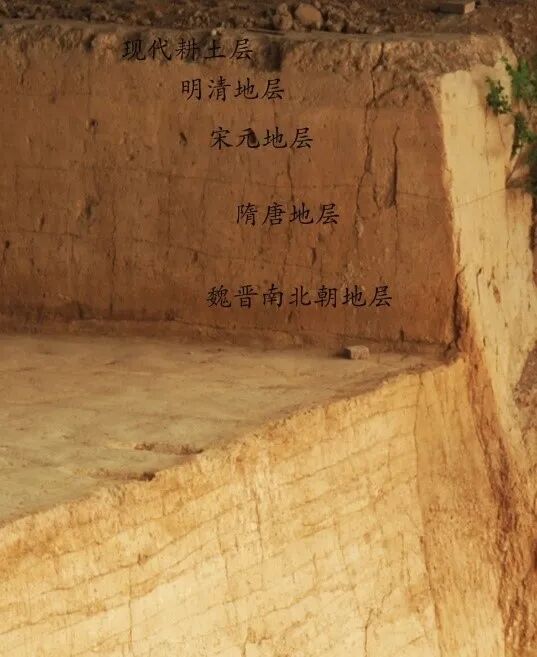 现代耕土层
明清地层
宋元地层
隋唐地层
魏晋南北朝地层